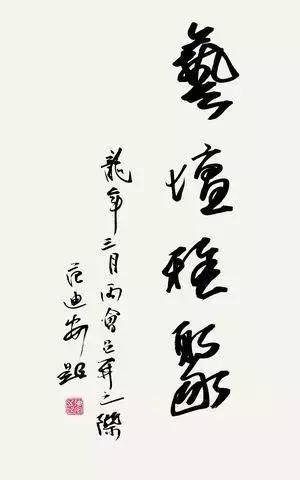 藝壇雅聚
龍年三月两會召開之際
范迪安題